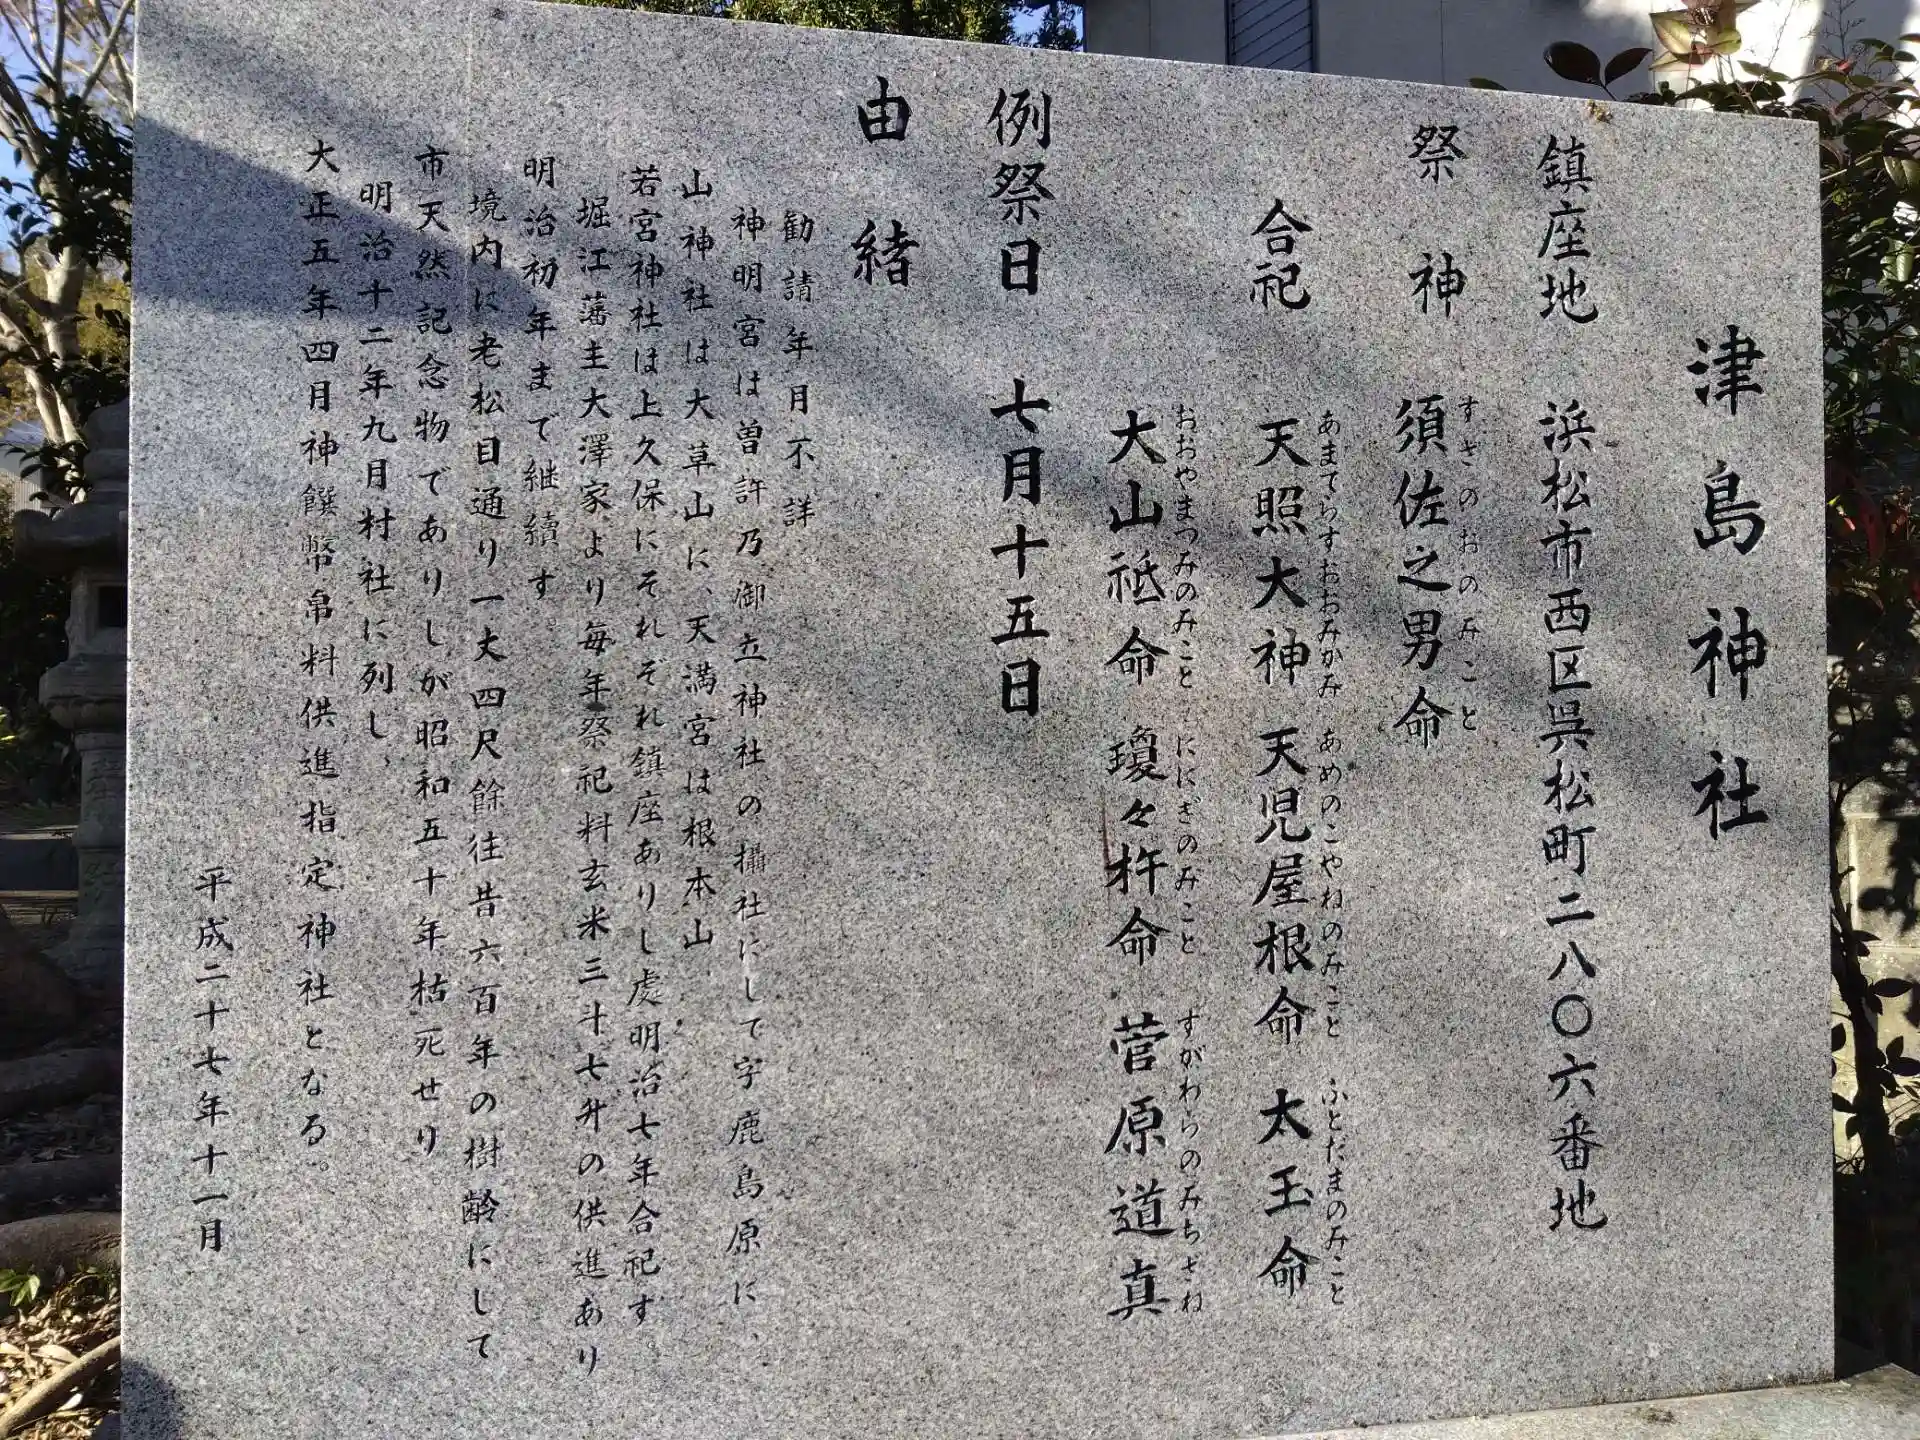 津島神社
鎮座地 浜松市西区呉松町二八〇六番地
祭神 須佐之男命
すさのおのみこと
合祀 天照大神 天児屋根命 太玉命
あまてらすおおみかみ あめのこやねのみこと ふとだまのみこと
大山祇命 瓊々杵命 菅原道真
おおやまつみのみこと ににぎのみこと すがわらのみちざね
例祭日 七月十五日
由緒
勧請年月不詳
神明宮は曽許乃御立神社の攝社にして字鹿島原に、
山神社は大草山に、天満宮は根本山
若宮神社は上久保にそれぞれ鎮座ありし處明治七年合祀す。
堀江藩主大澤家より毎年祭祀料玄米三斗七升の供進あり
明治初年まで継續す。
境内に老松目通り一丈四尺餘往昔六百年の樹齢にして
市天然記念物でありしが昭和五十年枯死せり
明治十二年九月村社に列し、
大正五年四月神饌幣帛料供進指定神社となる。
平成二十七年十一月